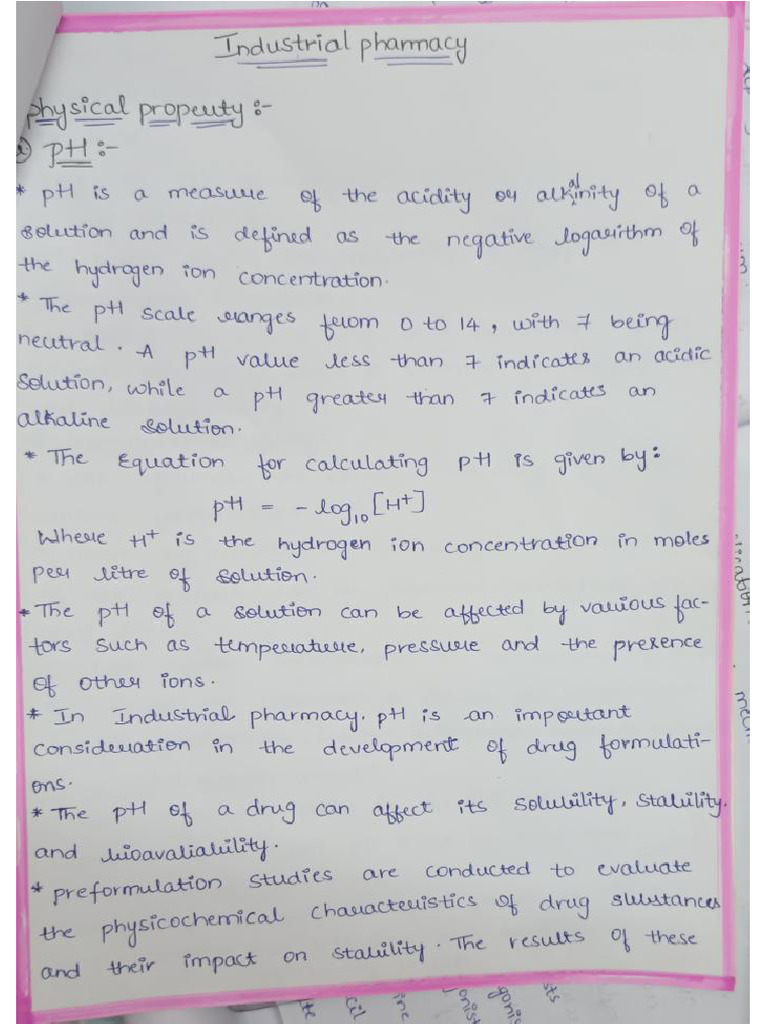 Industrial pharmacy
physical property :-
pH :-
* pH is a measure of the acidity or alkalinity of a
solution and is defined as the negative logarithm of
the hydrogen ion concentration.
* The pH scale ranges from 0 to 14, with 7 being
neutral. A pH value less than 7 indicates an acidic
solution, while a pH greater than 7 indicates an
alkaline solution.
* The Equation for calculating pH is given by:
pH = - log₁₀ [H⁺]
Where H⁺ is the hydrogen ion concentration in moles
per litre of solution.
* The pH of a solution can be affected by various fac-
tors such as temperature, pressure and the presence
of other ions.
* In Industrial pharmacy. pH is an important
consideration in the development of drug formulati-
ons.
* The pH of a drug can affect its solubility, stability.
and bioavaliability.
* preformulation studies are conducted to evaluate
the physicochemical characteristics of drug substances
and their impact on stability. The results of these